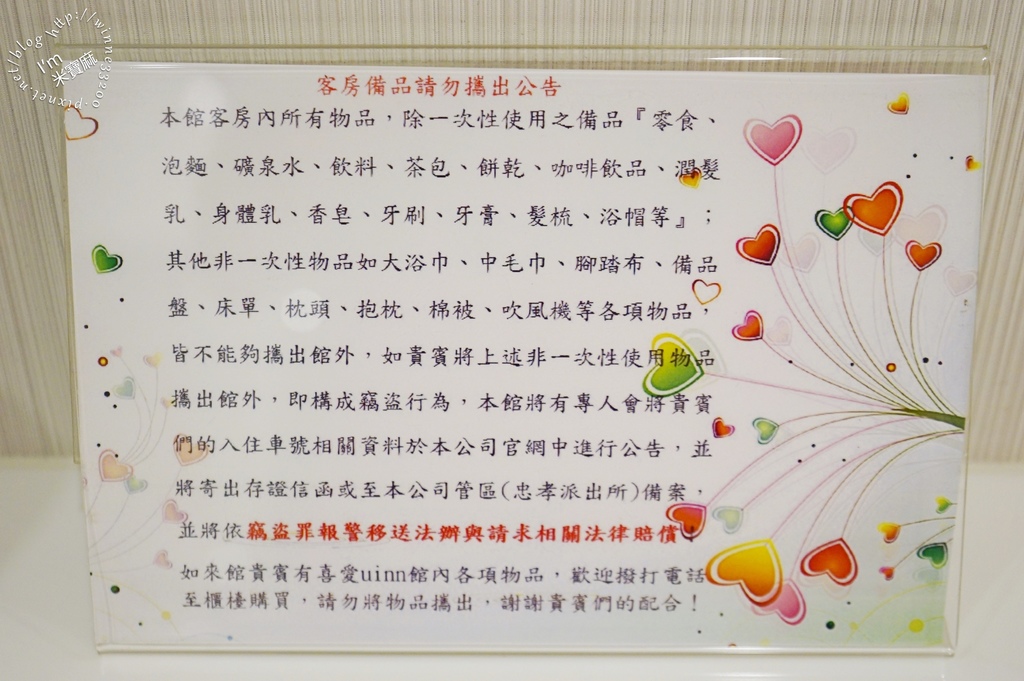 http://winne33200.pixnet.net/blog
I'm
米寶麻
客房備品請勿攜出公告
本館客房內所有物品，除一次性使用之備品『零食、
泡麵、礦泉水、飲料、茶包、餅乾、咖啡飲品、潤髮
乳、身體乳、香皂、牙刷、牙膏、髮梳、浴帽等』；
其他非一次性物品如大浴巾、中毛巾、腳踏布、備品
盤、床單、枕頭、抱枕、棉被、吹風機等各項物品，
皆不能夠攜出館外，如貴賓將上述非一次性使用物品
攜出館外，即構成竊盜行為，本館將有專人會將貴賓
們的入住車號相關資料於本公司官網中進行公告，並
將寄出存證信函或至本公司管區(忠孝派出所)備案，
並將依竊盜罪報警移送法辦與請求相關法律賠償！
如來館貴賓有喜愛uinn館內各項物品，歡迎撥打電話
至櫃檯購買，請勿將物品攜出，謝謝貴賓們的配合！